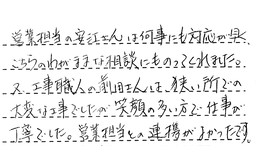 営業担当の安江さんは何事にも対応が早く
こちらのわがままな相談にものってくれました。
又、工事職人の前田さんは、狭い所での
大変な工事でしたが笑顔の多い方で仕事が
丁寧でした。営業担当との連携がよかったです。